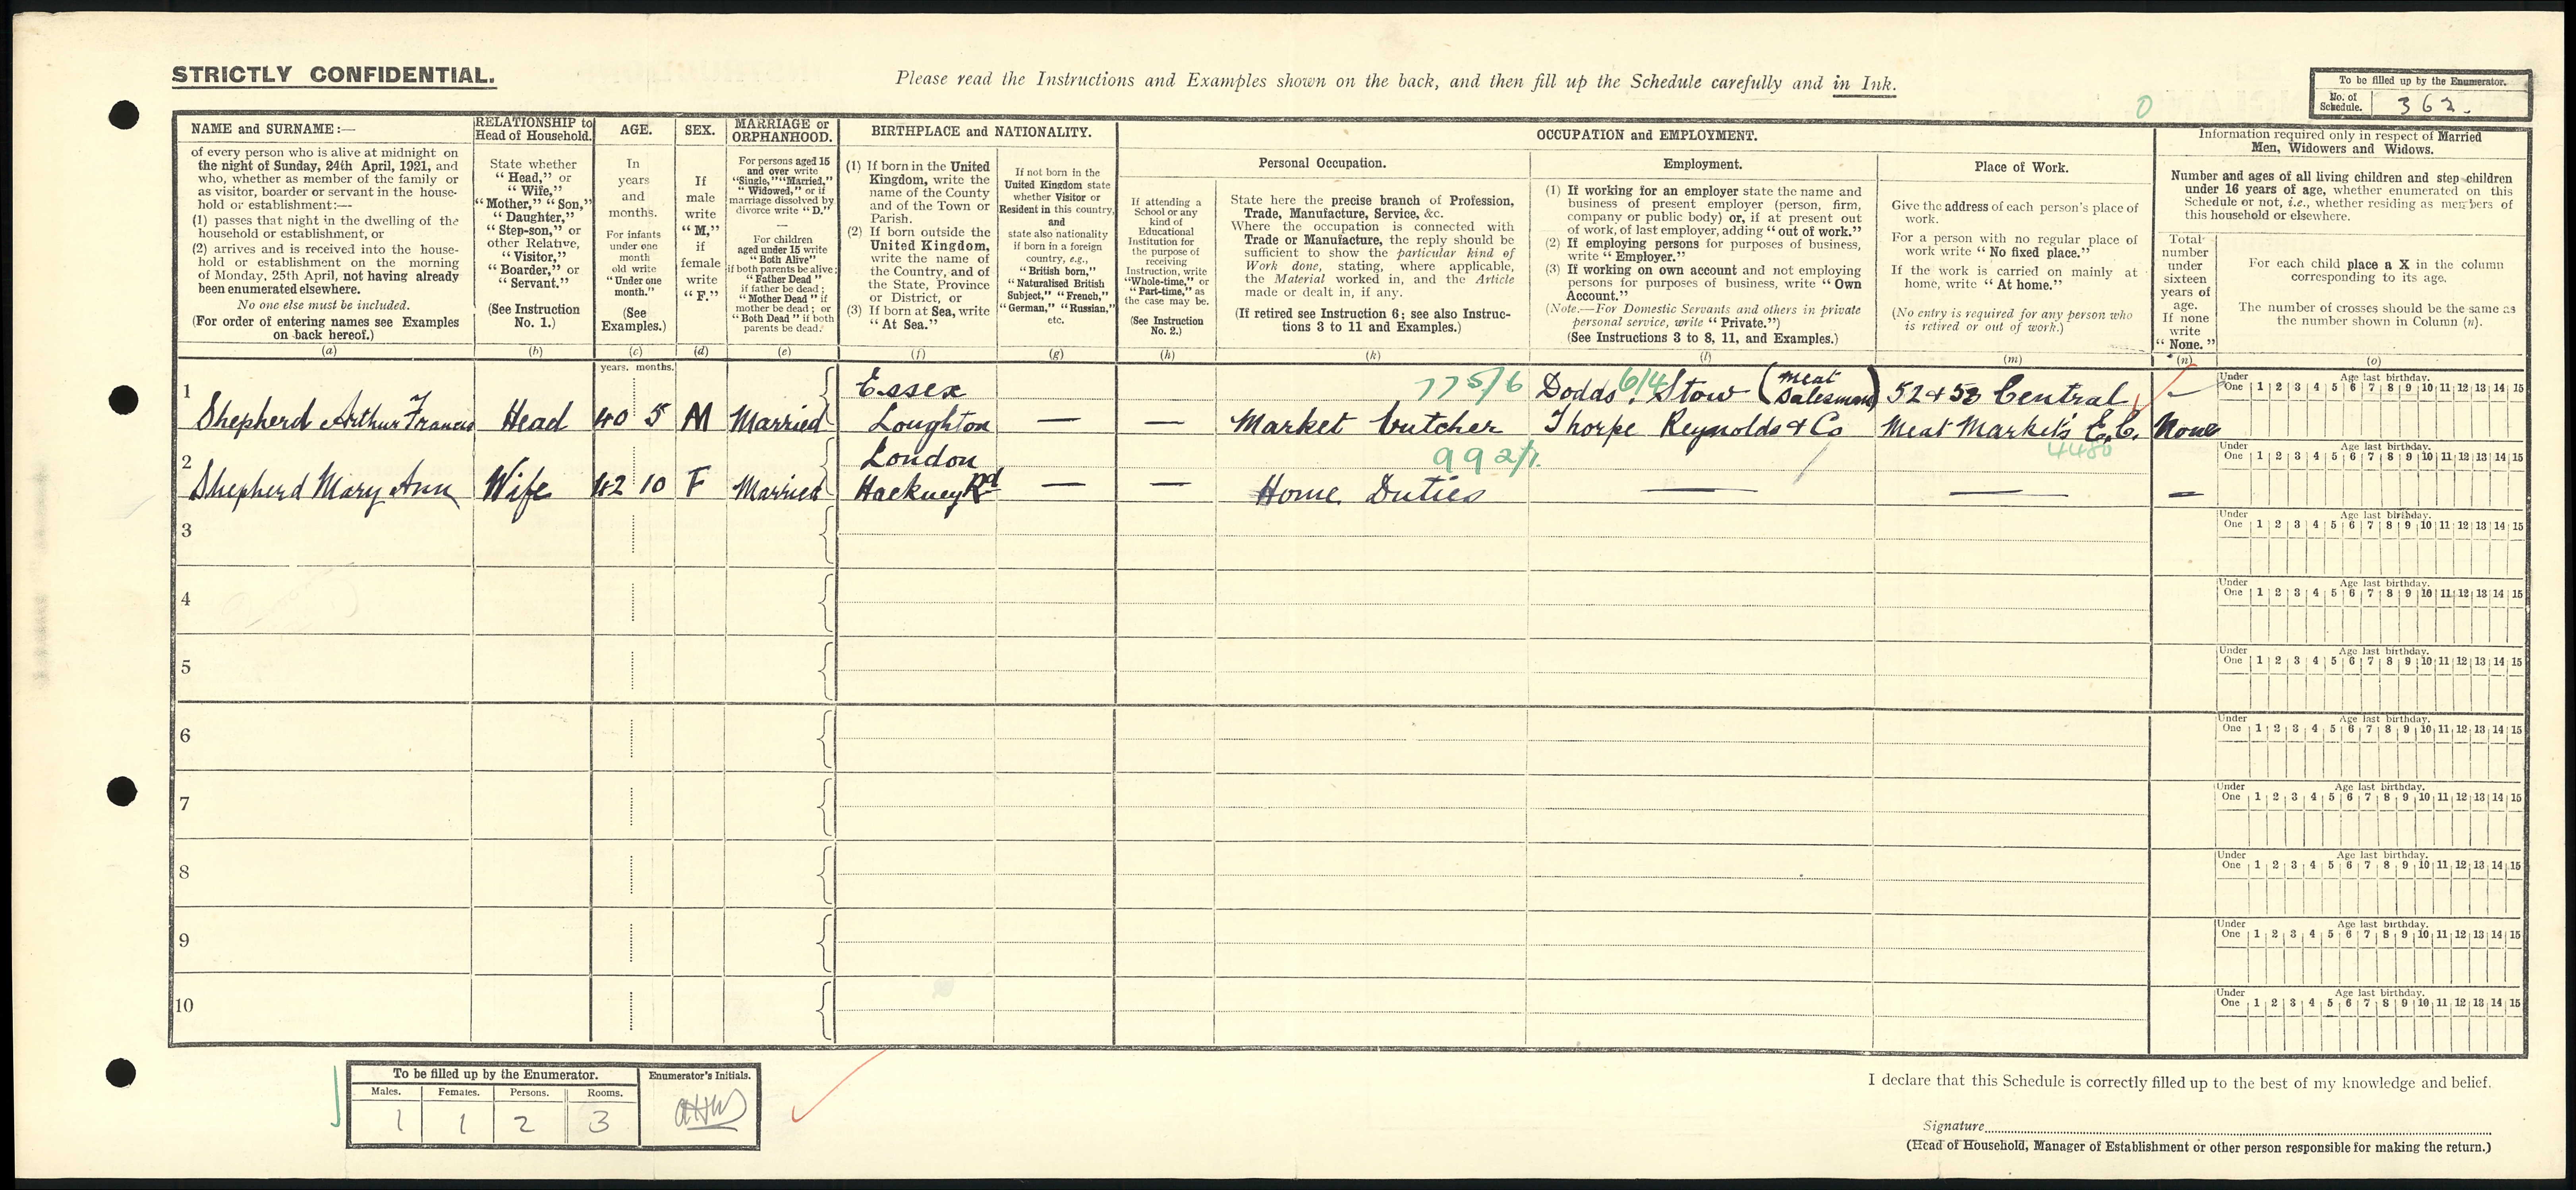 STRICTLY CONFIDENTIAL.
Please read the Instructions and Examples shown on the back, and then fill up the Schedule carefully and in Ink.
To be filled up by the Enumerator.
No. of Schedule. 362.
0
NAME and SURNAME:—
of every person who is alive at midnight on
the night of Sunday, 24th April, 1921, and
who, whether as member of the family or
as visitor, boarder or servant in the house-
hold or establishment:—
(1) passes that night in the dwelling of the
household or establishment, or
(2) arrives and is received into the house-
hold or establishment on the morning
of Monday, 25th April, not having already
been enumerated elsewhere.
No one else must be included.
(For order of entering names see Examples
on back hereof.)
(a)
RELATIONSHIP to
Head of Household.
State whether
“Head,” or
“Wife,”
“Mother,” “Son,”
“Daughter,”
“Step-son,” or
other Relative,
“Visitor,”
“Boarder,” or
“Servant.”
(See Instruction
No. 1.)
(b)
AGE.
In
years
and
months.
For infants
under one
month
old write
“Under one
month.”
(See
Examples.)
(c)
SEX.
If
male
write
“M,”
if
female
write
“F.”
(d)
MARRIAGE or
ORPHANHOOD.
For persons aged 15
and over write
“Single,” “Married,”
“Widowed,” or if
marriage dissolved by
divorce write “D.”
—
For children
aged under 15 write
“Both Alive”
if both parents be alive;
“Father Dead”
if father be dead;
“Mother Dead” if
mother be dead; or
“Both Dead” if both
parents be dead.
(e)
BIRTHPLACE and NATIONALITY.
(1) If born in the United
Kingdom, write the
name of the County
and of the Town or
Parish.
(2) If born outside the
United Kingdom,
write the name of
the Country, and of
the State, Province
or District, or
(3) If born at Sea, write
“At Sea.”
(f)
If not born in the
United Kingdom state
whether Visitor or
Resident in this country,
and
state also nationality
if born in a foreign
country, e.g.,
“British born,”
“Naturalised British
Subject,” “French,”
“German,” “Russian,”
etc.
(g)
OCCUPATION and EMPLOYMENT.
If attending a
School or any
kind of
Educational
Institution for
the purpose of
receiving
Instruction, write
“Whole-time,” or
“Part-time,” as
the case may be.
(See Instruction
No. 2.)
(h)
Personal Occupation.
State here the precise branch of Profession,
Trade, Manufacture, Service, &c.
Where the occupation is connected with
Trade or Manufacture, the reply should be
sufficient to show the particular kind of
Work done, stating, where applicable,
the Material worked in, and the Article
made or dealt in, if any.
(If retired see Instruction 6; see also Instruc-
tions 3 to 11 and Examples.)
(k)
Employment.
(1) If working for an employer state the name and
business of present employer (person, firm,
company or public body) or, if at present out
of work, of last employer, adding “out of work.”
(2) If employing persons for purposes of business,
write “Employer.”
(3) If working on own account and not employing
persons for purposes of business, write “Own
Account.”
(Note.—For Domestic Servants and others in private
personal service, write “Private.”)
(See Instructions 3 to 8, 11, and Examples.)
(l)
Place of Work.
Give the address of each person's place of
work.
For a person with no regular place of
work write “No fixed place.”
If the work is carried on mainly at
home, write “At home.”
(No entry is required for any person who
is retired or out of work.)
(m)
Information required only in respect of Married
Men, Widowers and Widows.
Number and ages of all living children and step-children
under 16 years of age, whether enumerated on this
Schedule or not, i.e., whether residing as members of
this household or elsewhere.
Total
number
under
sixteen
years of
age.
If none
write
“None.”
(n)
For each child place a X in the column
corresponding to its age.
The number of crosses should be the same as
the number shown in Column (n).
(o)
years. months.
1 Essex 775/6 Dodds, 6/4 Stow (Meat Salesman) 52 & 53 Central —
Shepherd Arthur Francis Head 40 5 M Married Loughton — — Market butcher Thorpe Reynolds & Co Meat Markets E.C. None
Under One Age last birthday. 1 2 3 4 5 6 7 8 9 10 11 12 13 14 15
2 London 992/1. 4480
Shepherd Mary Ann Wife 42 10 F Married Hackney Rd — — Home Duties — — —
Under One Age last birthday. 1 2 3 4 5 6 7 8 9 10 11 12 13 14 15
3 Under One Age last birthday. 1 2 3 4 5 6 7 8 9 10 11 12 13 14 15
4 Under One Age last birthday. 1 2 3 4 5 6 7 8 9 10 11 12 13 14 15
5 Under One Age last birthday. 1 2 3 4 5 6 7 8 9 10 11 12 13 14 15
6 Under One Age last birthday. 1 2 3 4 5 6 7 8 9 10 11 12 13 14 15
7 Under One Age last birthday. 1 2 3 4 5 6 7 8 9 10 11 12 13 14 15
8 Under One Age last birthday. 1 2 3 4 5 6 7 8 9 10 11 12 13 14 15
9 Under One Age last birthday. 1 2 3 4 5 6 7 8 9 10 11 12 13 14 15
10 Under One Age last birthday. 1 2 3 4 5 6 7 8 9 10 11 12 13 14 15
To be filled up by the Enumerator.
Males. Females. Persons. Rooms.
1 1 2 3
Enumerator's Initials.
I declare that this Schedule is correctly filled up to the best of my knowledge and belief.
Signature
(Head of Household, Manager of Establishment or other person responsible for making the return.)